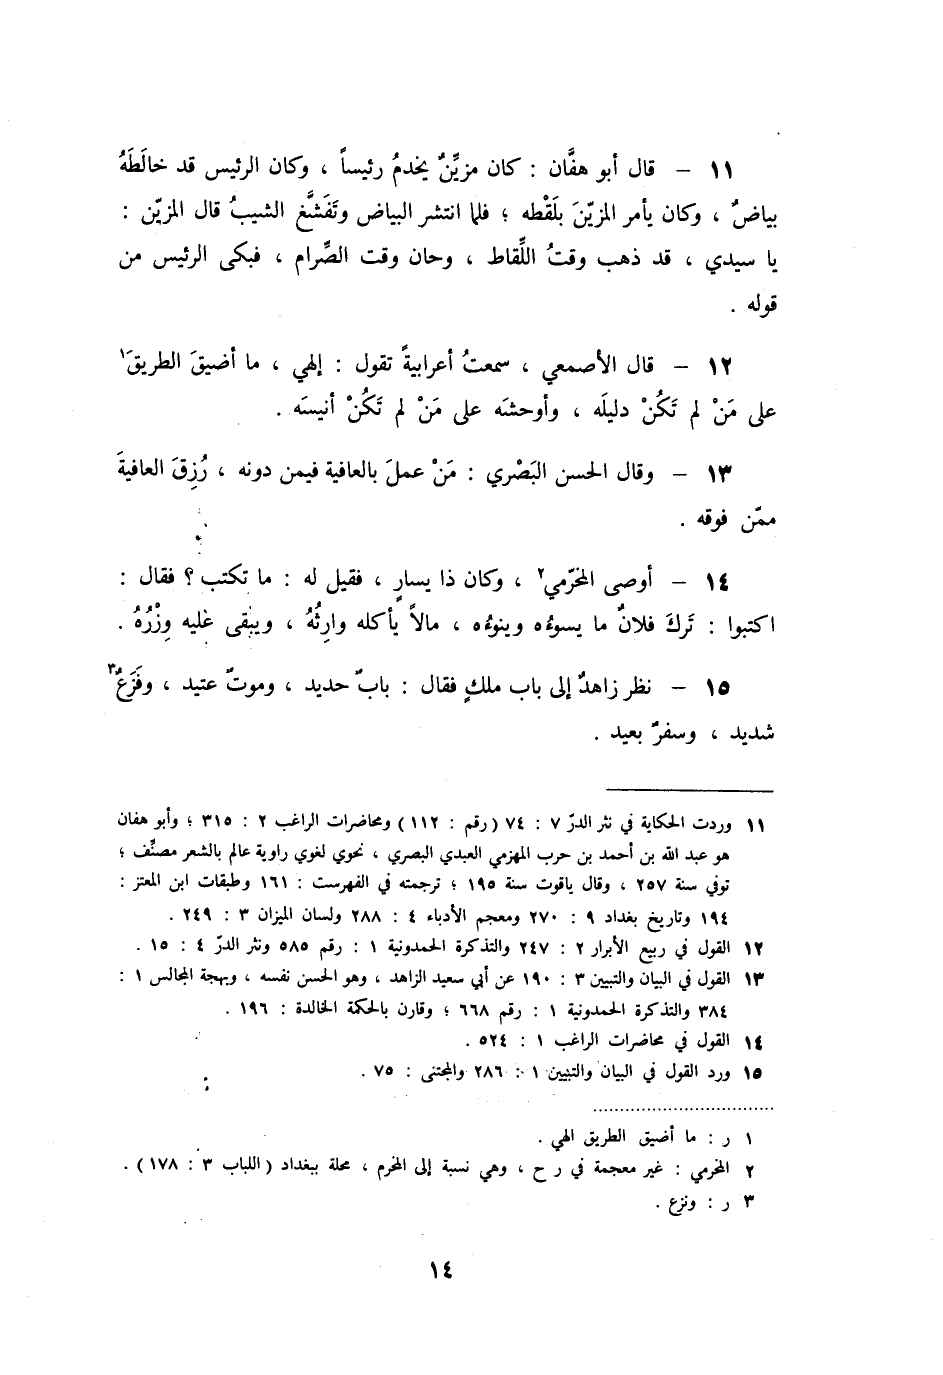 ١١ – قال أبو هفَّان : كان مزيِّنٌ يخدمُ رئيساً ، وكان الرئيس قد خالَطَهُ
بياضٌ ، وكان يأمر المزيّنَ بلَقْطه ؛ فلما انتشر البياض وتَفَشَّغ الشيبُ قال المزيّن :
يا سيدي ، قد ذهب وقتُ اللِّقاط ، وحان وقت الصِّرام ، فبكى الرئيس من
قوله .
١٢ – قال الأصمعي ، سمعتُ أعرابيةً تقول : إلهي ، ما أضيقَ الطريقَ١
على مَنْ لم تَكُنْ دليلَه ، وأوحشَه على مَنْ لم تَكُنْ أنيسَه .
١٣ – وقال الحسن البَصْري : مَنْ عملَ بالعافية فيمن دونه ، رُزِقَ العافيةَ
ممّن فوقه .
١٤ – أوصى المخرّمي٢ ، وكان ذا يسارٍ ، فقيل له : ما تكتب ؟ فقال :
اكتبوا : تَركَ فلانٌ ما يسوءُه وينوءُه ، مالاً يأكله وارِثُهُ ، ويبقى عليه وِزْرُهُ .
١٥ – نظر زاهدٌ إلى باب ملكٍ فقال : بابٌ حديد ، وموتٌ عتيد ، وفَزَعٌ٣
شديد ، وسفرٌ بعيد .
١١ وردت الحكاية في نثر الدرّ ٧ : ٧٤ (رقم : ١١٢) ومحاضرات الراغب ٢ : ٣١٥ ؛ وأبو هفان
هو عبد الله بن أحمد بن حرب المهزمي العبدي البصري ، نحوي لغوي راوية عالم بالشعر مصنِّف ؛
توفي سنة ٢٥٧ ، وقال ياقوت سنة ١٩٥ ؛ ترجمته في الفهرست : ١٦١ وطبقات ابن المعتز :
١٩٤ وتاريخ بغداد ٩ : ٢٧٠ ومعجم الأدباء ٤ : ٢٨٨ ولسان الميزان ٣ : ٢٤٩ .
١٢ القول في ربيع الأبرار ٢ : ٢٤٧ والتذكرة الحمدونية ١ : رقم ٥٨٥ ونثر الدرّ ٤ : ١٥ .
١٣ القول في البيان والتبيين ٣ : ١٩٠ عن أبي سعيد الزاهد ، وهو الحسن نفسه ، وبهجة المجالس ١ :
٣٨٤ والتذكرة الحمدونية ١ : رقم ٦٦٨ ؛ وقارن بالحكمة الخالدة : ١٩٦ .
١٤ القول في محاضرات الراغب ١ : ٥٢٤ .
١٥ ورد القول في البيان والتبيين ١ : ٢٨٦ والمجتنى : ٧٥ .
١ ر : ما أضيق الطريق الهي .
٢ المخرمي : غير معجمة في ر ح ، وهي نسبة إلى المخرم ، محلة ببغداد (اللباب ٣ : ١٧٨) .
٣ ر : ونزع .
١٤